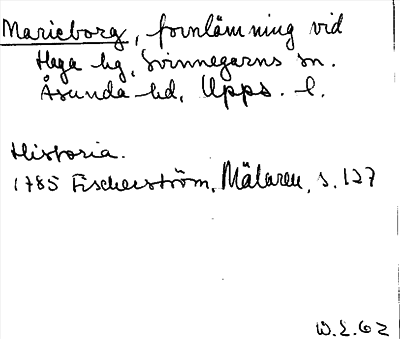 Marieborg, fornlämning vid
Haga hg, Svinnegarns sn.
Åsunda hd, Upps. l.
Historia.
1785 Fischerström, Mälaren, s. 127
W.E. 62